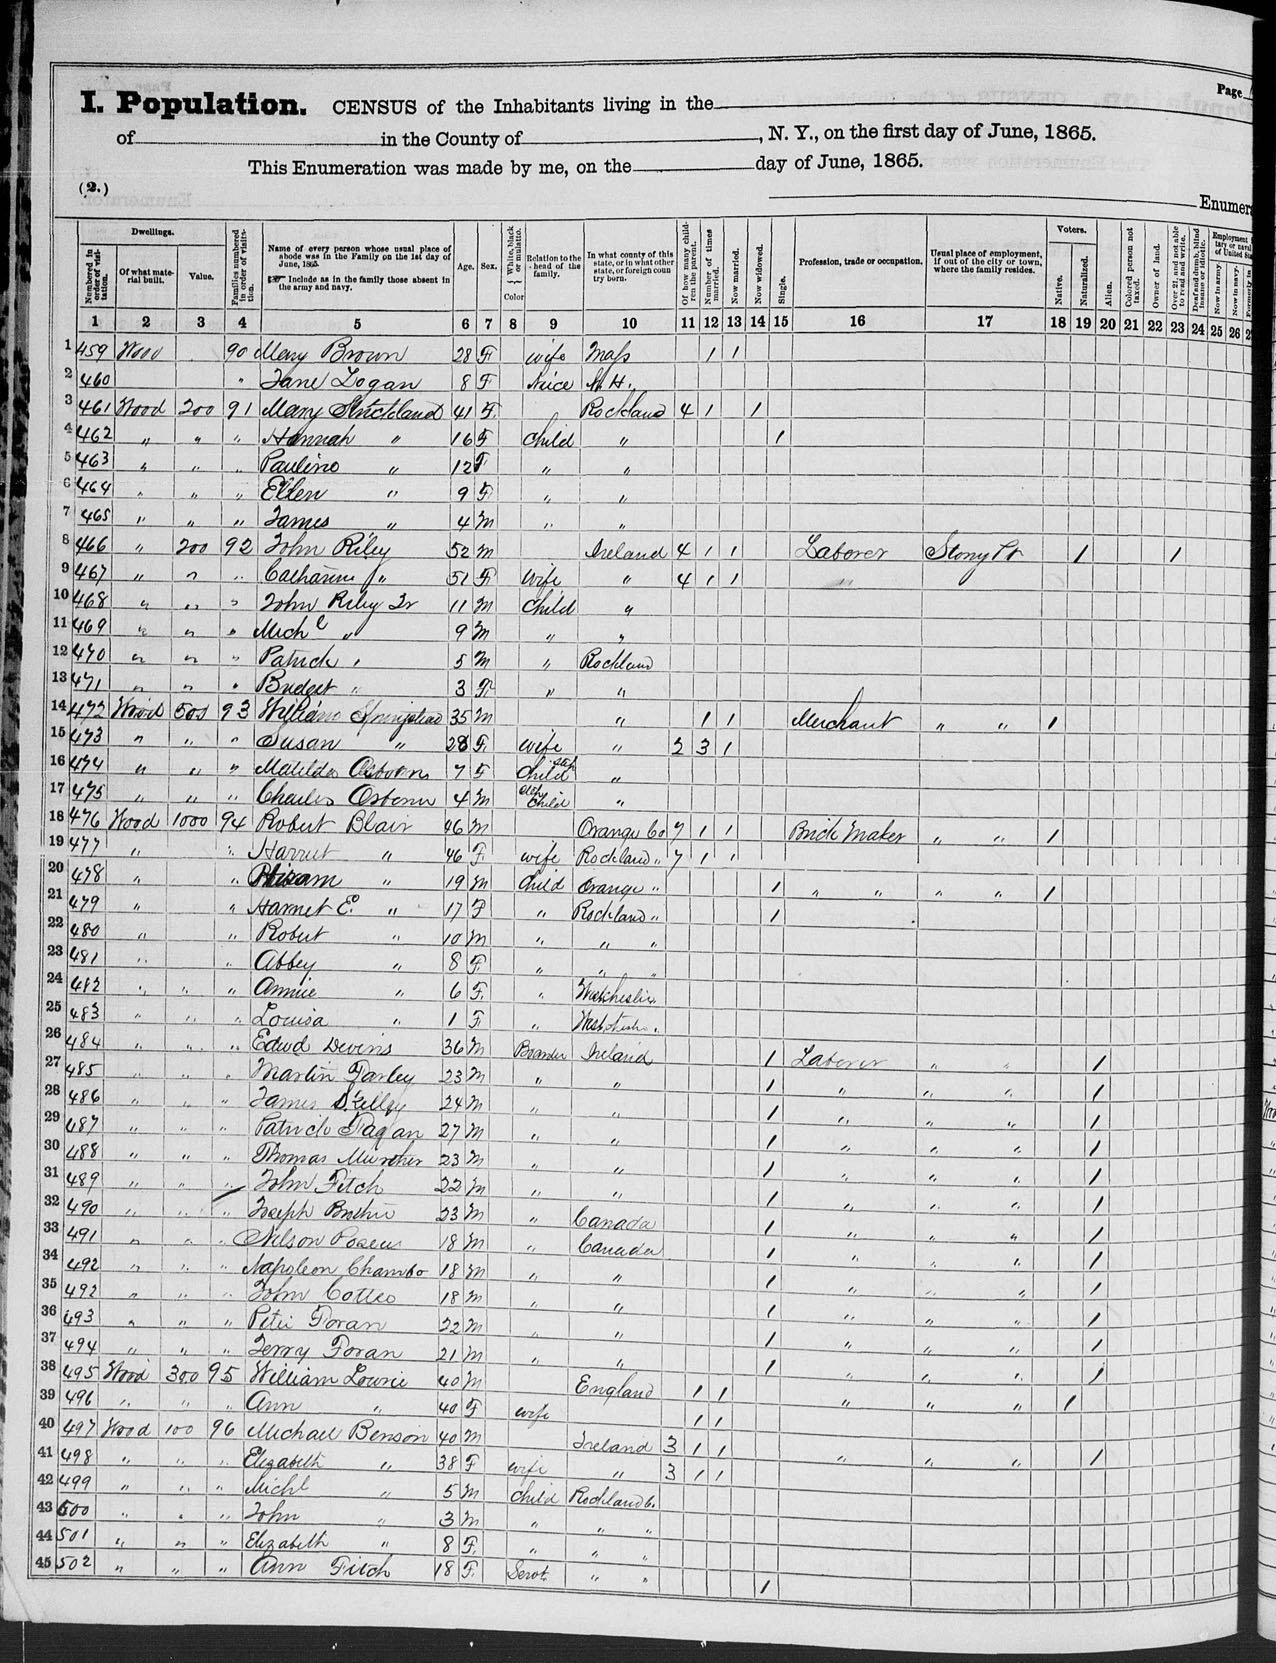 Page
I. Population. CENSUS of the Inhabitants living in the
of in the County of , N. Y., on the first day of June, 1865.
This Enumeration was made by me, on the day of June, 1865.
(2.)
Enumera
Dwellings. Voters.
Numbered in order of visitation. Of what material built. Value. Families numbered in order of visitation. Name of every person whose usual place of abode was in the Family on the 1st day of June, 1865. ☞ Include as in the family those absent in the army and navy. Age. Sex. White, black or mulatto. Color Relation to the head of the family. In what county of this state, or in what other state, or foreign country born. Of how many children the parent. Number of times married. Now married. Now widowed. Single. Profession, trade or occupation. Usual place of employment, if out of the city or town, where the family resides. Native. Naturalized. Alien. Colored person not taxed. Owner of land. Over 21, and not able to read and write. Deaf and dumb, blind insane or idiotic. Now in army. Now in navy. Formerly in
1 2 3 4 5 6 7 8 9 10 11 12 13 14 15 16 17 18 19 20 21 22 23 24 25 26 2
1 459 Wood 90 Mary Brown 28 F wife Mass 1 1
2 460 " Jane Logan 8 F Niece N.H.
3 461 Wood 200 91 Mary Strickland 41 F Rockland 4 1 1
4 462 " " " Hannah " 16 F Child " 1
5 463 " " " Pauline " 12 F " "
6 464 " " " Ellen " 9 F " "
7 465 " " " James " 4 M " "
8 466 " 200 92 John Riley 52 M Ireland 4 1 1 Laborer Stony Pt 1 1
9 467 " " " Catharine " 51 F wife " 4 1 1 "
10 468 " " " John Riley Jr 11 M Child "
11 469 " " " Michl " 9 M " "
12 470 " " " Patrick " 5 M " Rockland
13 471 " " " Bridget " 3 F " "
14 472 Wood 500 93 William Springstead 35 M " 1 1 Merchant " " 1
15 473 " " " Susan " 28 F wife " 2 3 1
16 474 " " " Matilda Osborn 7 F step Child "
17 475 " " " Charles Osborn 4 M step Child "
18 476 Wood 1000 94 Robert Blair 46 M Orange Co 7 1 1 Brick Maker " " 1
19 477 " " Harriet " 46 F wife Rockland " 7 1 1
20 478 " " Hiram " 19 M Child Orange " 1 " " " " 1
21 479 " " Harriet E. " 17 F " Rockland " 1
22 480 " " Robert " 10 M " " "
23 481 " " Abbey " 8 F " " "
24 482 " " " Annie " 6 F " Westchester
25 483 " " " Louisa " 1 F "
26 484 " " " Edwd Devins 36 M Boarder Ireland 1 Laborer " " 1
27 485 " " " Martin Farley 23 M " " 1 " " " 1
28 486 " " " James 24 M " " 1 " " " 1
29 487 " " " Patrick Fagan 27 M " " 1 " " " 1
30 488 " " " Thomas 23 M " " 1 " " " 1
31 489 " " " John Fitch 22 M " " 1 " " " 1
32 490 " " " Joseph 23 M " Canada 1 " " " 1
33 491 " " " Nelson 18 M " Canada 1 " " " 1
34 492 " " " Napoleon Chambo 18 M " " 1 " " " 1
35 492 " " " John 18 M " " 1 " " " 1
36 493 " " " Peter Foran 22 M " " 1 " " " 1
37 494 " " " Terry Foran 21 M " " 1 " " " 1
38 495 Wood 300 95 William Lowrie 40 M England 1 1 " " " 1
39 496 " " " Ann " 40 F wife 1 1
40 497 Wood 100 96 Michael Benson 40 M Ireland 3 1 1 " " " 1
41 498 " " " Elizabeth " 38 F wife " 3 1 1
42 499 " " " Michl " 5 M Child Rockland Co.
43 500 " " " John " 3 M " " "
44 501 " " " Elizabeth " 8 F " " "
45 502 " " " Ann Fitch 18 F Servt " " 1